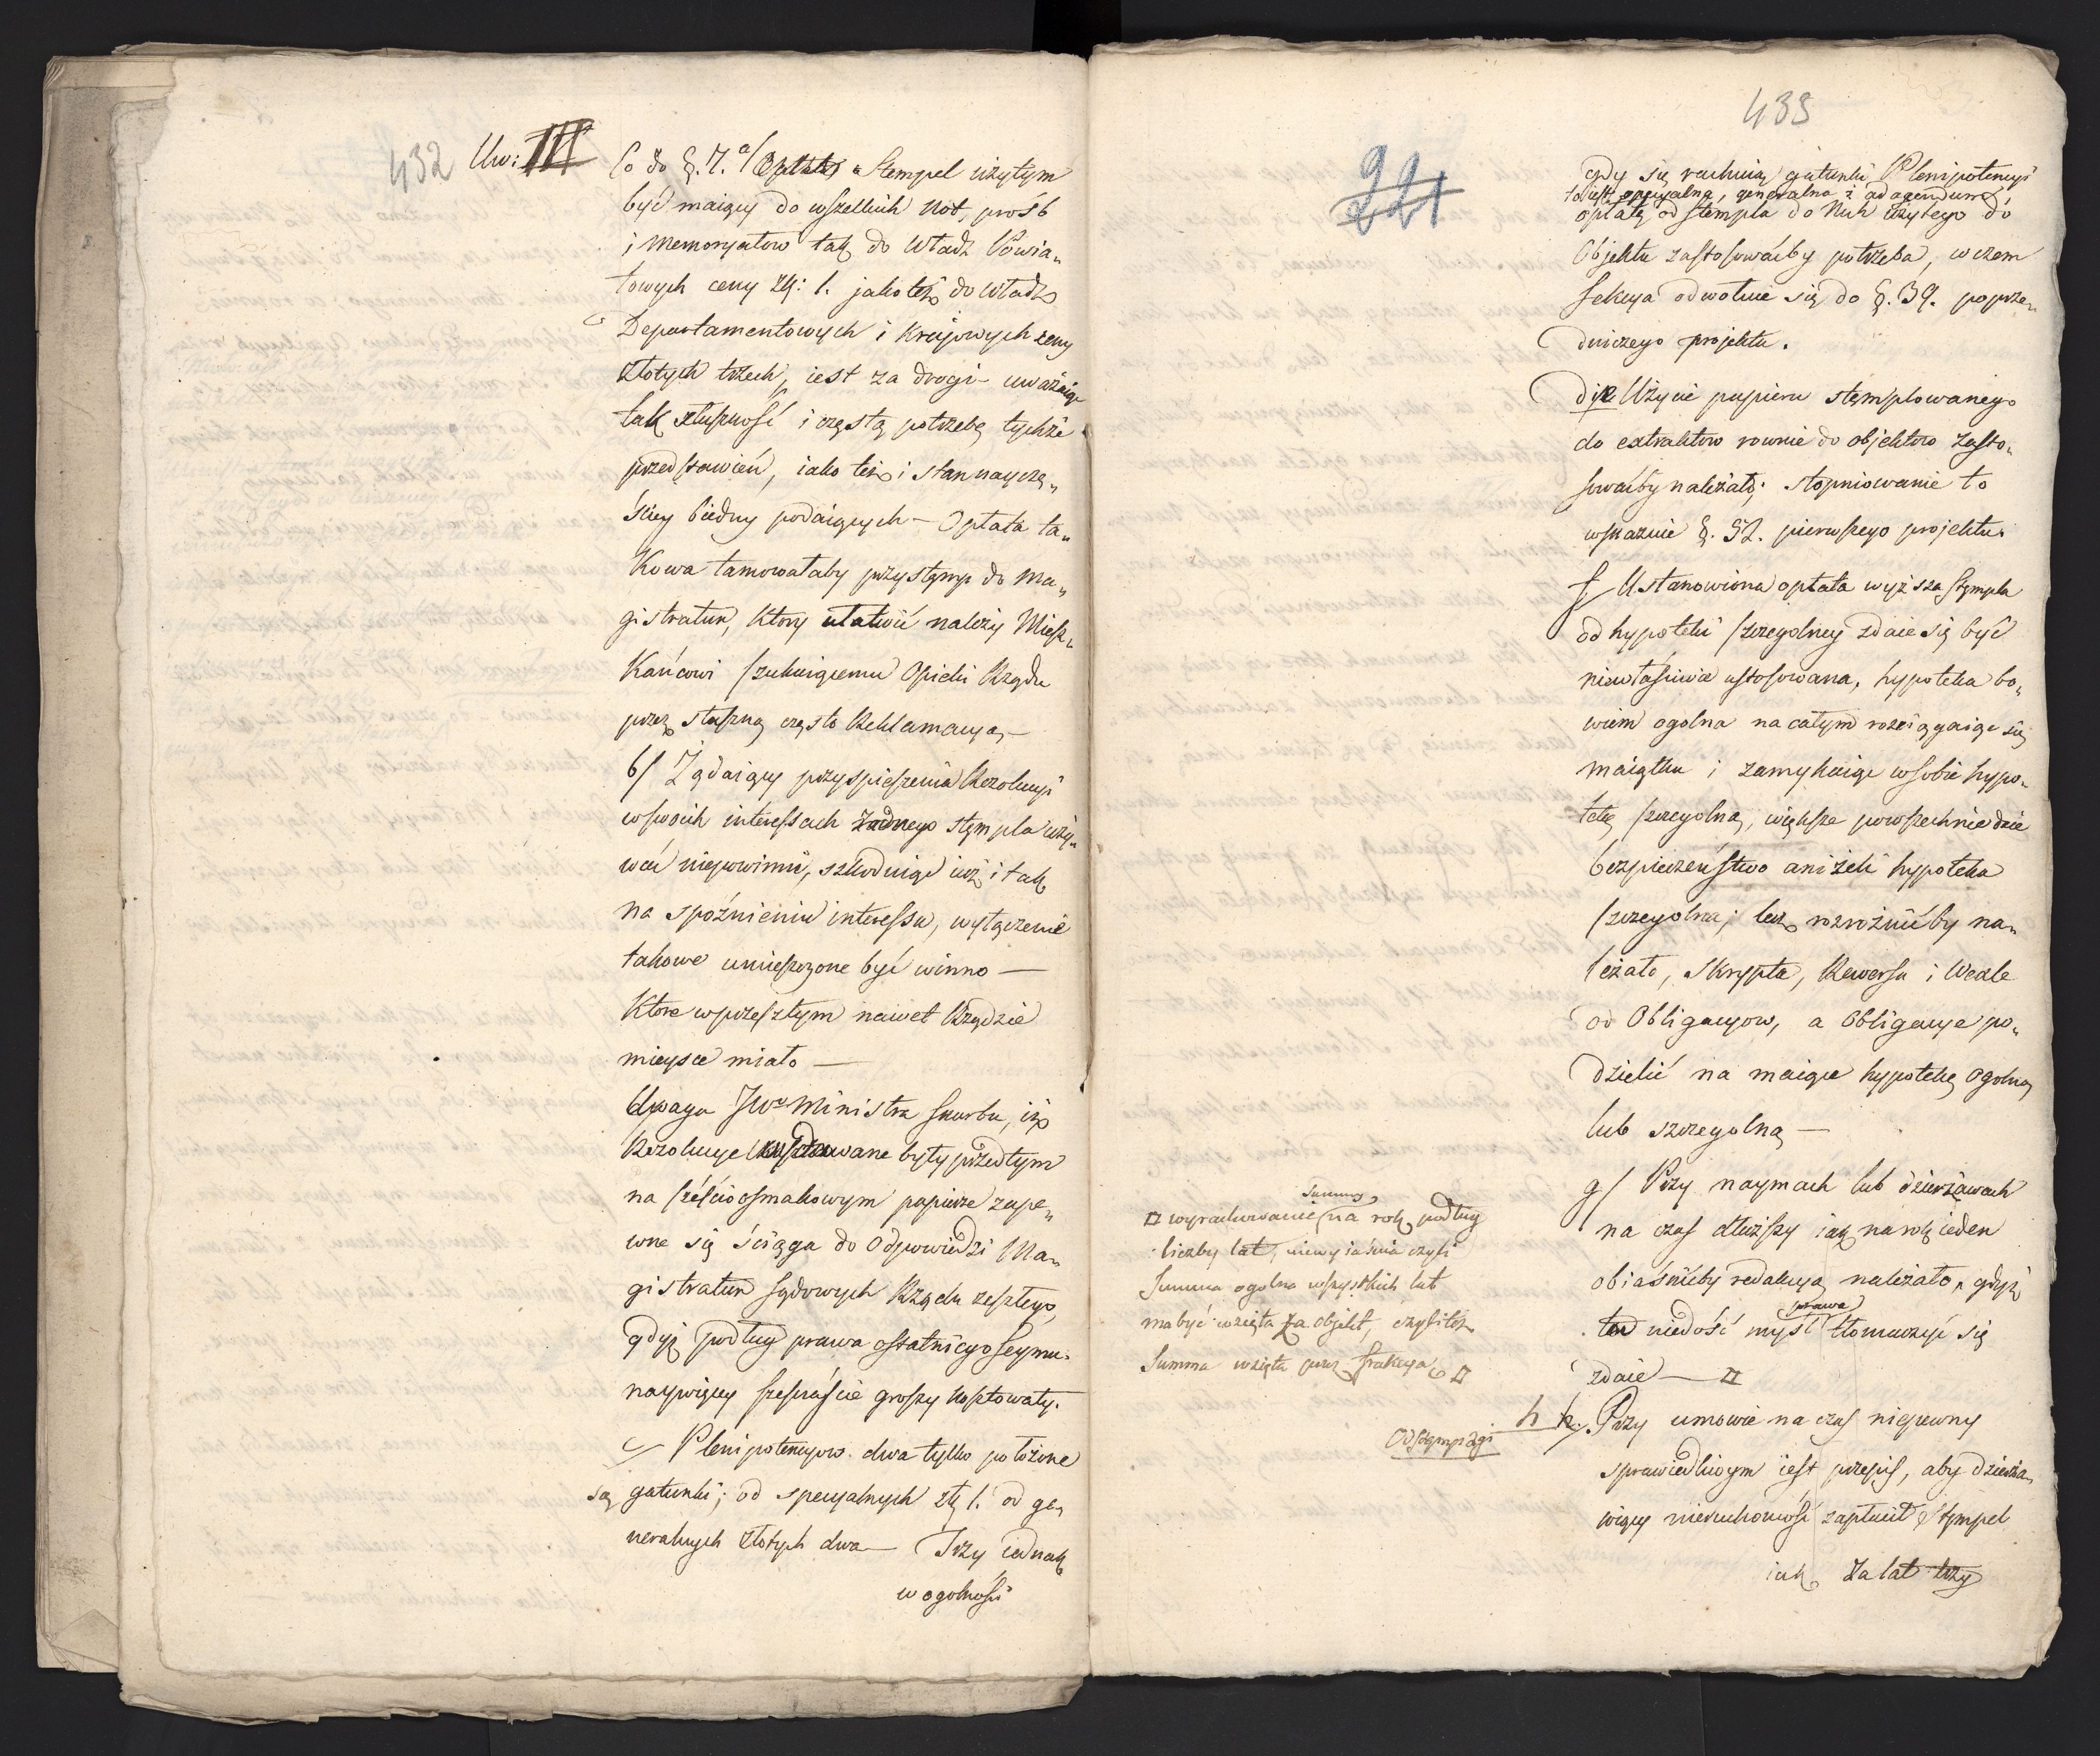 432 Uw: III
Co do §. 7. a/ Opłata Stempel użytym
być maiący do wszelkich Not, prośb
i Memoryałow tak do Władz Powia„
towych ceny Zł: 1. jako też do Władz
Departamentowych i Krajowych ceny
złotych trzech, iest za drogi – uważaiąc
tak słuszność i częstą potrzebę tychże
przedstawień, iako też i stan naycze„
ściey biedny podaiących – Opłata ta„
Kowa tamowałaby przystęmp do Ma„
gistratur, Ktory ułatwić należy Miesz„
Kańcowi szukaiącemu Opieki Rządu
przez słuszną często Reklamacyą, –
b/ Żądaiący przyspieszenia Rezolucyi
w swoich interessach żadnego stęmpla uży„
wać niepowinni, szkoduiąc iuż i tak
na spoźnieniu interessu, wyłączenie
takowe umieszczone być winno —
Ktore w przeszłym nawet Rządzie
mieysce miało —
Uwaga JWo Ministra Skarbu, iż
Rezolucye wydawane były przedtym
na sześcioosmakowym papierze zape„
wne się ściąga do Odpowiedzi Ma„
gistratur sądowych Rządu zeszłego,
gdyż podług prawa ostatniego Seymu
naywięcey szesnaście groszy kosztowały.
c/ Plenipotencyow dwa tylko położone
są gatunki; od specyalnych zł 1. od ge„
neralnych złotych dwa — Trzy iednak
w ogolności
433
221
gdy się rachuią gatunki Plenipotencyi
to iest specyalna, generalna i ad agendum
opłatę od stempla do Nich użytego do
Objektu zastosowaćby potrzeba, w czem
Sekcya odwołuie się do §. 39. poprze„
dniczego projektu.
d/e Użycie papieru stęmplowanego
do extraktow rownie do objektow zasto„
sowaćby należało; stopniowanie to
wskazuie §. 52. pierwszego projektu.
f/ Ustanowiona opłata wyższa stęmpla
od hypoteki szczegolney zdaie się być
niewłaściwie ustosowana, hypoteka bo„
wiem ogolna na całym rozciągaiąc się
maiątku i zamykaiąc w sobie hypo„
tekę szczegolną, większe powszechnie daie
bezpieczeństwo aniżeli hypoteka
szczegolna; lecz rozrożnićby na„
leżało, Skrypta, Rewersa i Wexle
od Obligacyow, a Obligacye po„
dzielić na maiące hypotekę Ogolną
lub szczegolną —
g/ Przy naymach lub dzierżawach
na czas dłuższy iak na rok ieden
obiaśnićby redakcyą należało, gdyż
tu niedość myśl prawa tłomaczyć się
zdaie — ¤
¤ wyrachowanie summy na rok podług
liczby lat, niewyiaśnia czyli
Summa ogolna wszystkich lat
ma być wzięta za objekt, czyli też
Summa wzięta przez frakcyą ¤
Odstęmpiągi
h h/. Przy umowie na czas niepewny
sprawiedliwym iest przepis, aby dzierża„
wiący nieruchomość zapłacił stęmpel
iak za lat trzy